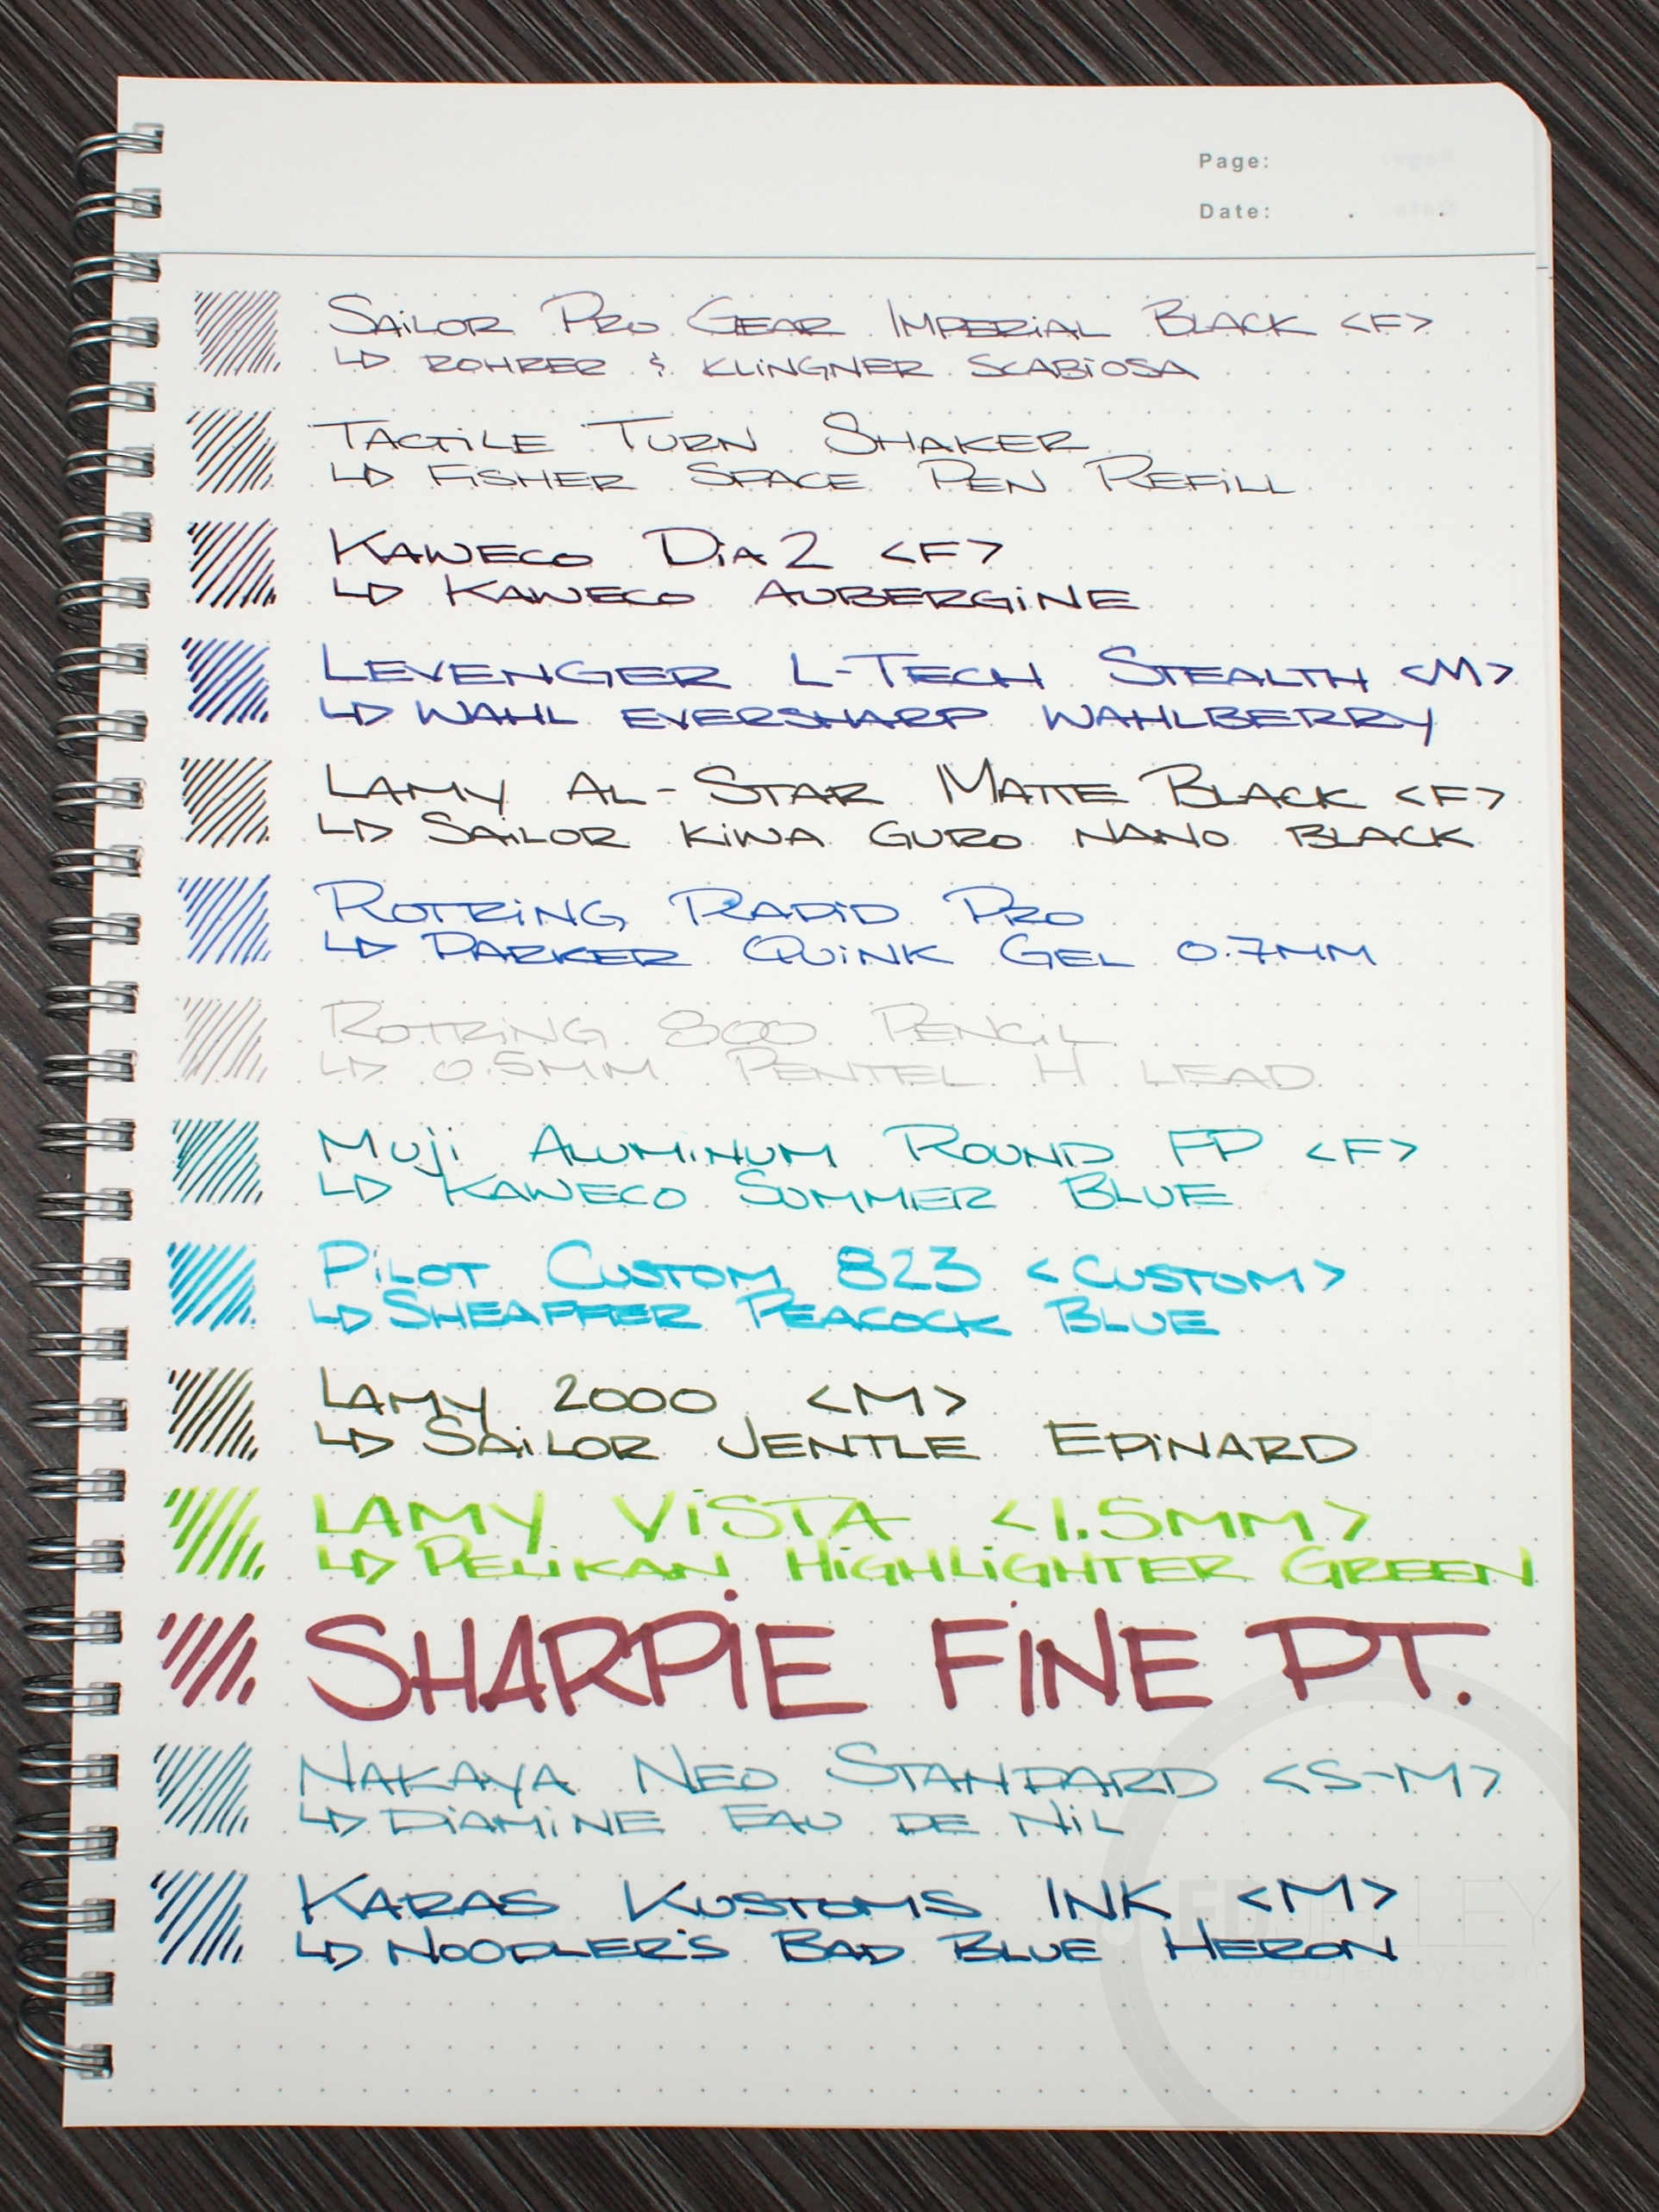 Page:
Date: . .
SAiLOR PRO GEAR IMPERiAL BLACK <F>
↳ ROHRER & KLiNGNER SCABiOSA
TACTiLE TURN SHAKER
↳ FiSHER SPACE PEN REFiLL
KAWECO DiA 2 <F>
↳ KAWECO AUBERGiNE
LEVENGER L-TECH STEALTH <M>
↳ WAHL EVERSHARP WAHLBERRY
LAMY AL-STAR MATTE BLACK <F>
↳ SAiLOR KiWA GURO NANO BLACK
ROTRiNG RAPiD PRO
↳ PARKER QUiNK GEL 0.7MM
ROTRiNG 800 PENCiL
↳ 0.5MM PENTEL H LEAD
MUji ALUMiNUM ROUND FP <F>
↳ KAWECO SUMMER BLUE
PiLOT CUSTOM 823 <CUSTOM>
↳ SHEAFFER PEACOCK BLUE
LAMY 2000 <M>
↳ SAiLOR JENTLE EPiNARD
LAMY ViSTA <1.5MM>
↳ PELiKAN HiGHLiGHTER GREEN
SHARPiE FiNE PT.
NAKAYA NEO STANDARD <S-M>
↳ DiAMiNE EAU DE NiL
KARAS KUSTOMS INK <M>
↳ NOODLER'S BAD BLUE HERON
EDJELLEY
www.edjelley.com